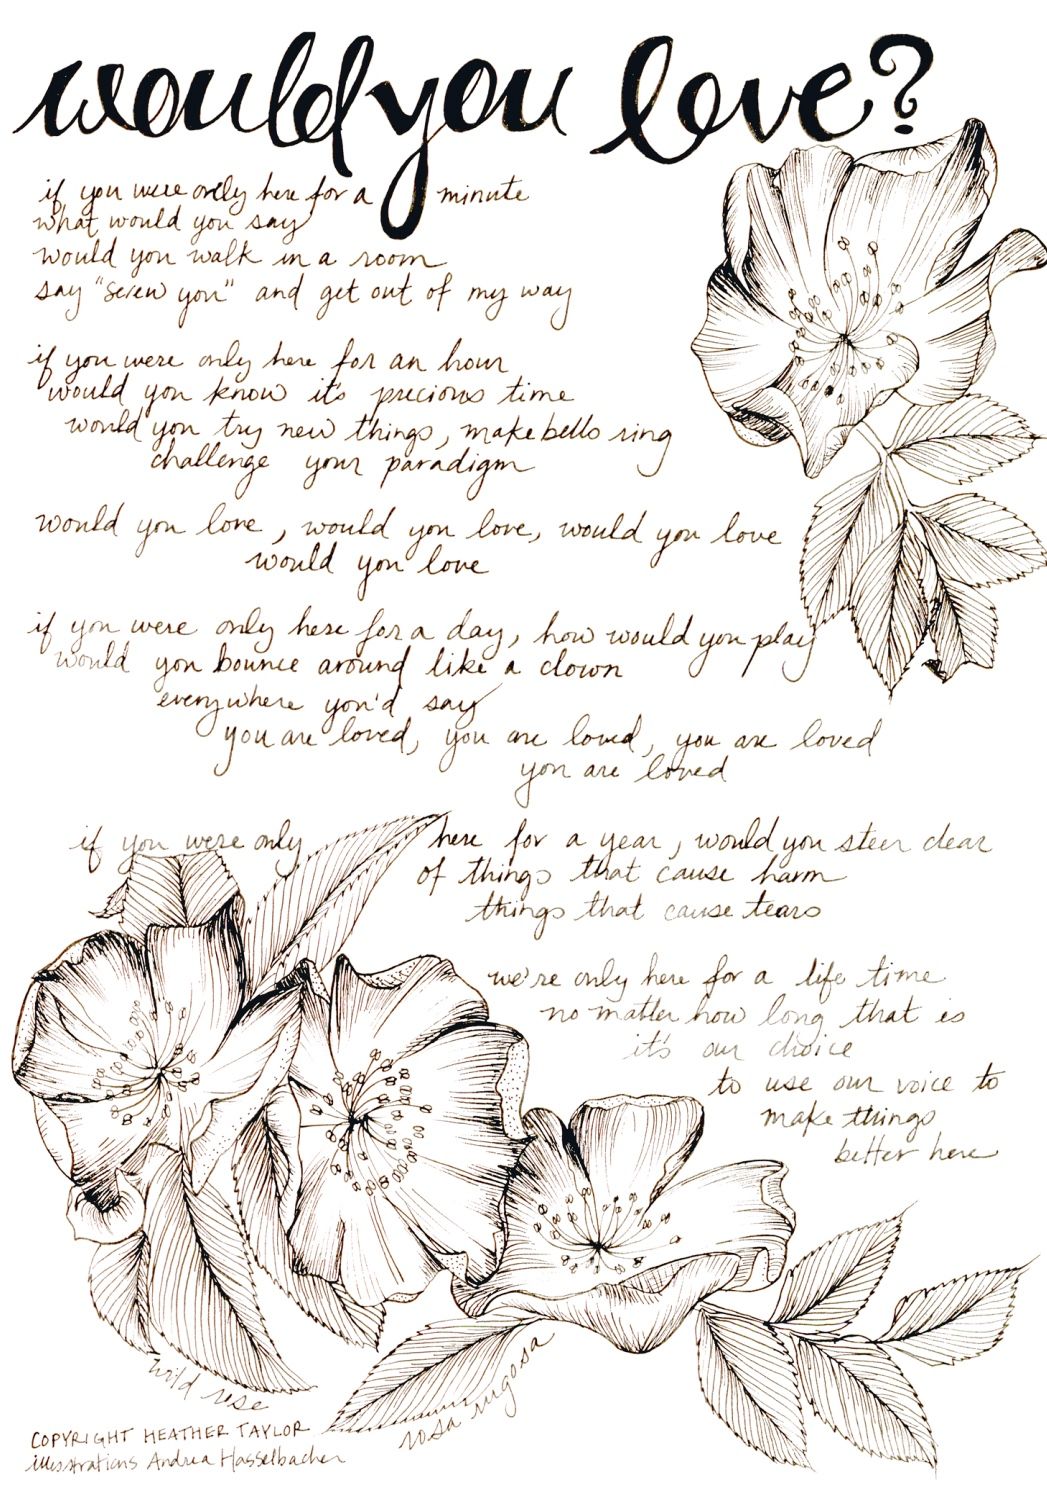 would you love?
if you were only here for a minute
what would you say
would you walk in a room
say "screw you" and get out of my way
if you were only here for an hour
would you know it's precious time
would you try new things, make bells ring
challenge your paradigm
would you love, would you love, would you love
would you love
if you were only here for a day, how would you play
would you bounce around like a clown
everywhere you'd say
you are loved, you are loved, you are loved
you are loved
if you were only here for a year, would you steer clear
of things that cause harm
things that cause tears
we're only here for a life time
no matter how long that is
it's our choice
to use our voice to
make things
better here
wild rose
rosa rugosa
COPYRIGHT HEATHER TAYLOR
illustrations Andrea Hasselbacher